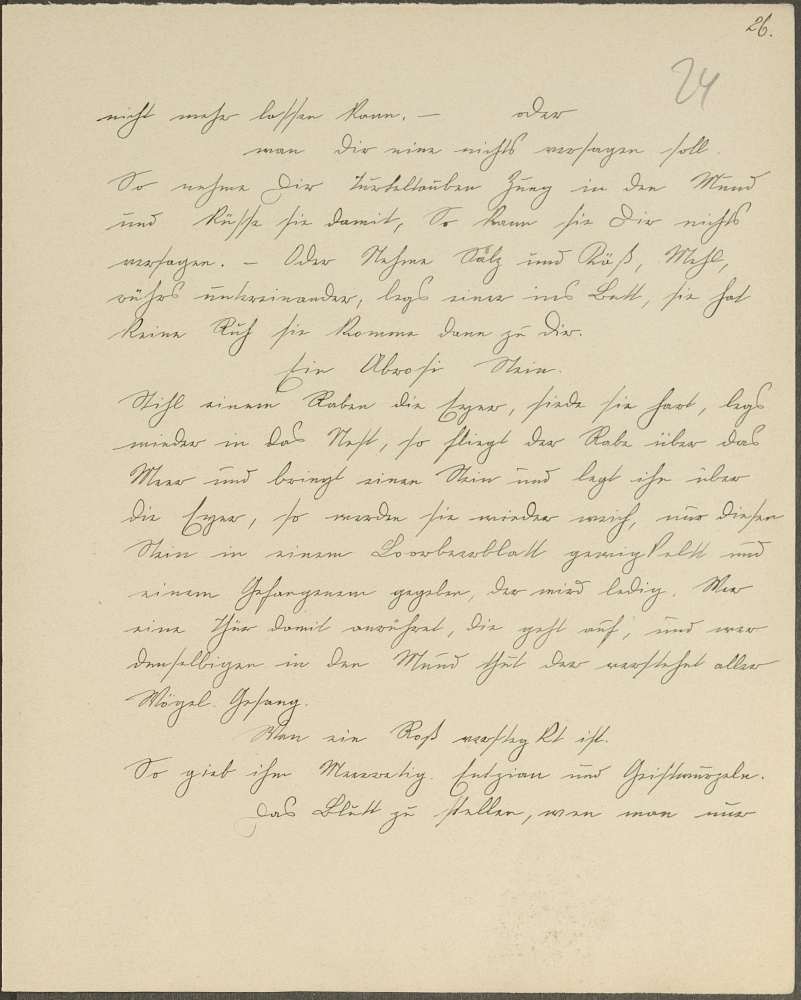 26.
24
nicht mehr lassen kann. — oder
man dir eine nichts versagen soll.
So nehme Dir Turteltauben Zung in den Mund
und Küsse sie damit, So kann sie Dir nichts
versagen. — Oder Nehme Salz und Käß, Mehl,
rührs untereinander, legs einer ins Bett, sie hat
keine Ruh sie komme dann zu dir.
Ein Abrosi Stein.
Stihl einem Raben die Eyer, siede sie hart, legs
wieder in das Nest, so fliegt der Rabe über das
Meer und bringt einen Stein und legt ihn über
die Eyer, so werden sie wieder weich, nur diesen
Stein in einem Loorbeerblatt gewigkeltt und
einem Gefangenem gegeben, der wird ledig. Wer
eine Thür damit anrühret, die geht auf, und wer
denselbigen in den Mund thut der verstehet aller
Vögel Gesang.
Wan ein Roß verstegkt ist.
So gieb ihm Meerretig. Entzian und Geistwurzeln.
Das Blutt zu stellen, wen man nur